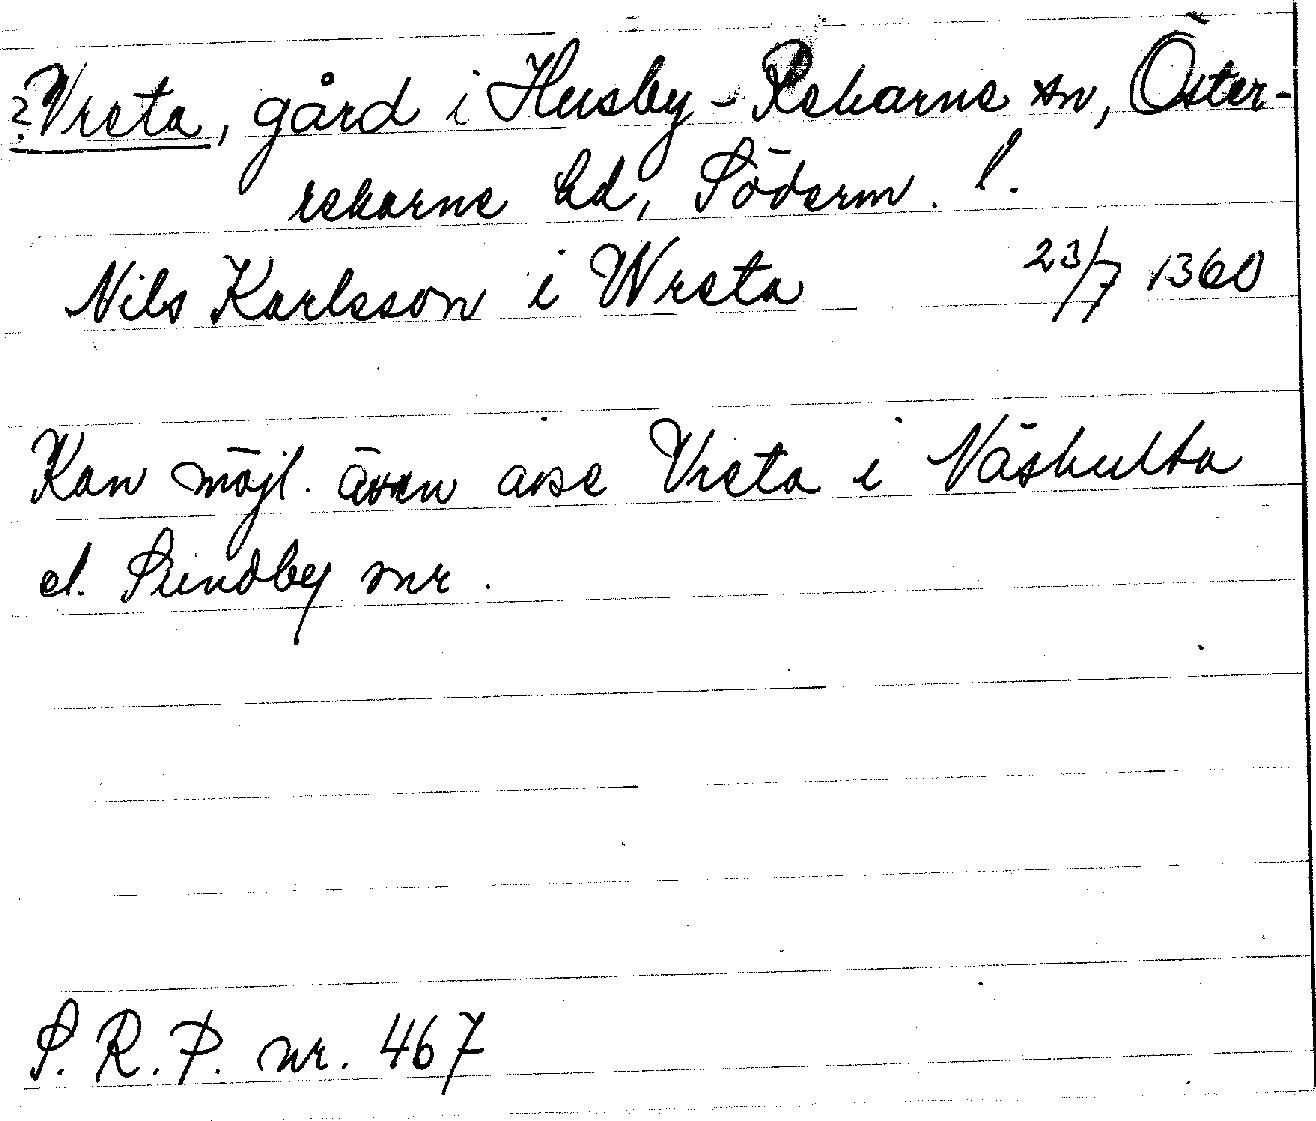 ?Vreta, gård i Husby-Rekarne sn, Öster-
rekarne hd, Söderm. l.
Nils Karlsson i Wreta 23/7 1360
Kan möjl. även avse Vreta i Näshulta
el. Sundby snr.
S. R. P. nr. 467